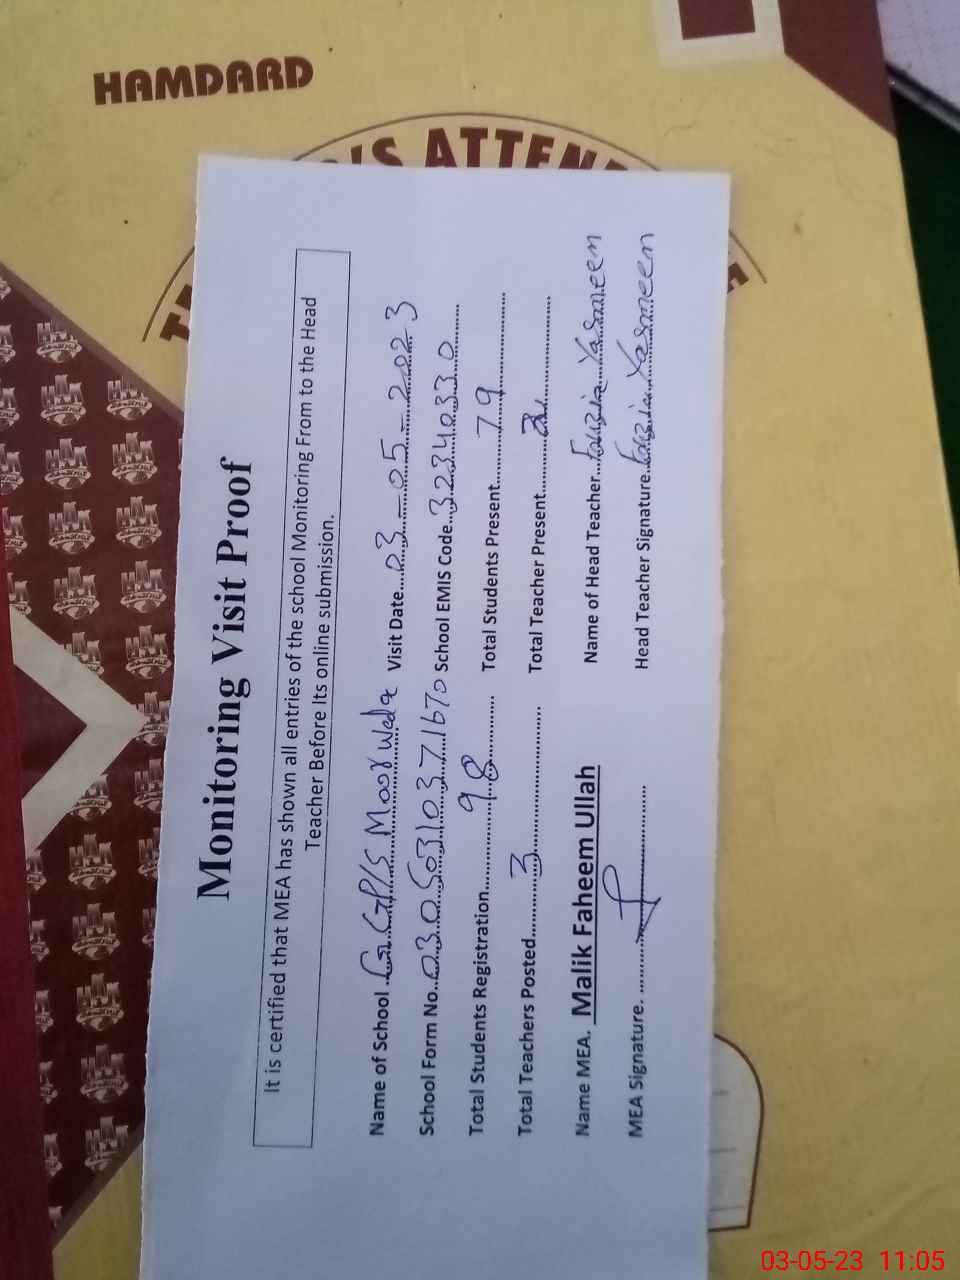 HAMDARD
'S ATTEN
Monitoring Visit Proof
It is certified that MEA has shown all entries of the school Monitoring From to the Head
Teacher Before Its online submission.
Name of School..G.G.P/S Moor Wala Visit Date....03-05-2023
School Form No..03050310371670 School EMIS Code..32340330
Total Students Registration....98.... Total Students Present....79....
Total Teachers Posted....3.... Total Teacher Present....
Name MEA. Malik Faheem Ullah Name of Head Teacher...Fouzia Yasmeen
MEA Signature. .... Head Teacher Signature...Fouzia Yasmeen
03-05-23 11:05